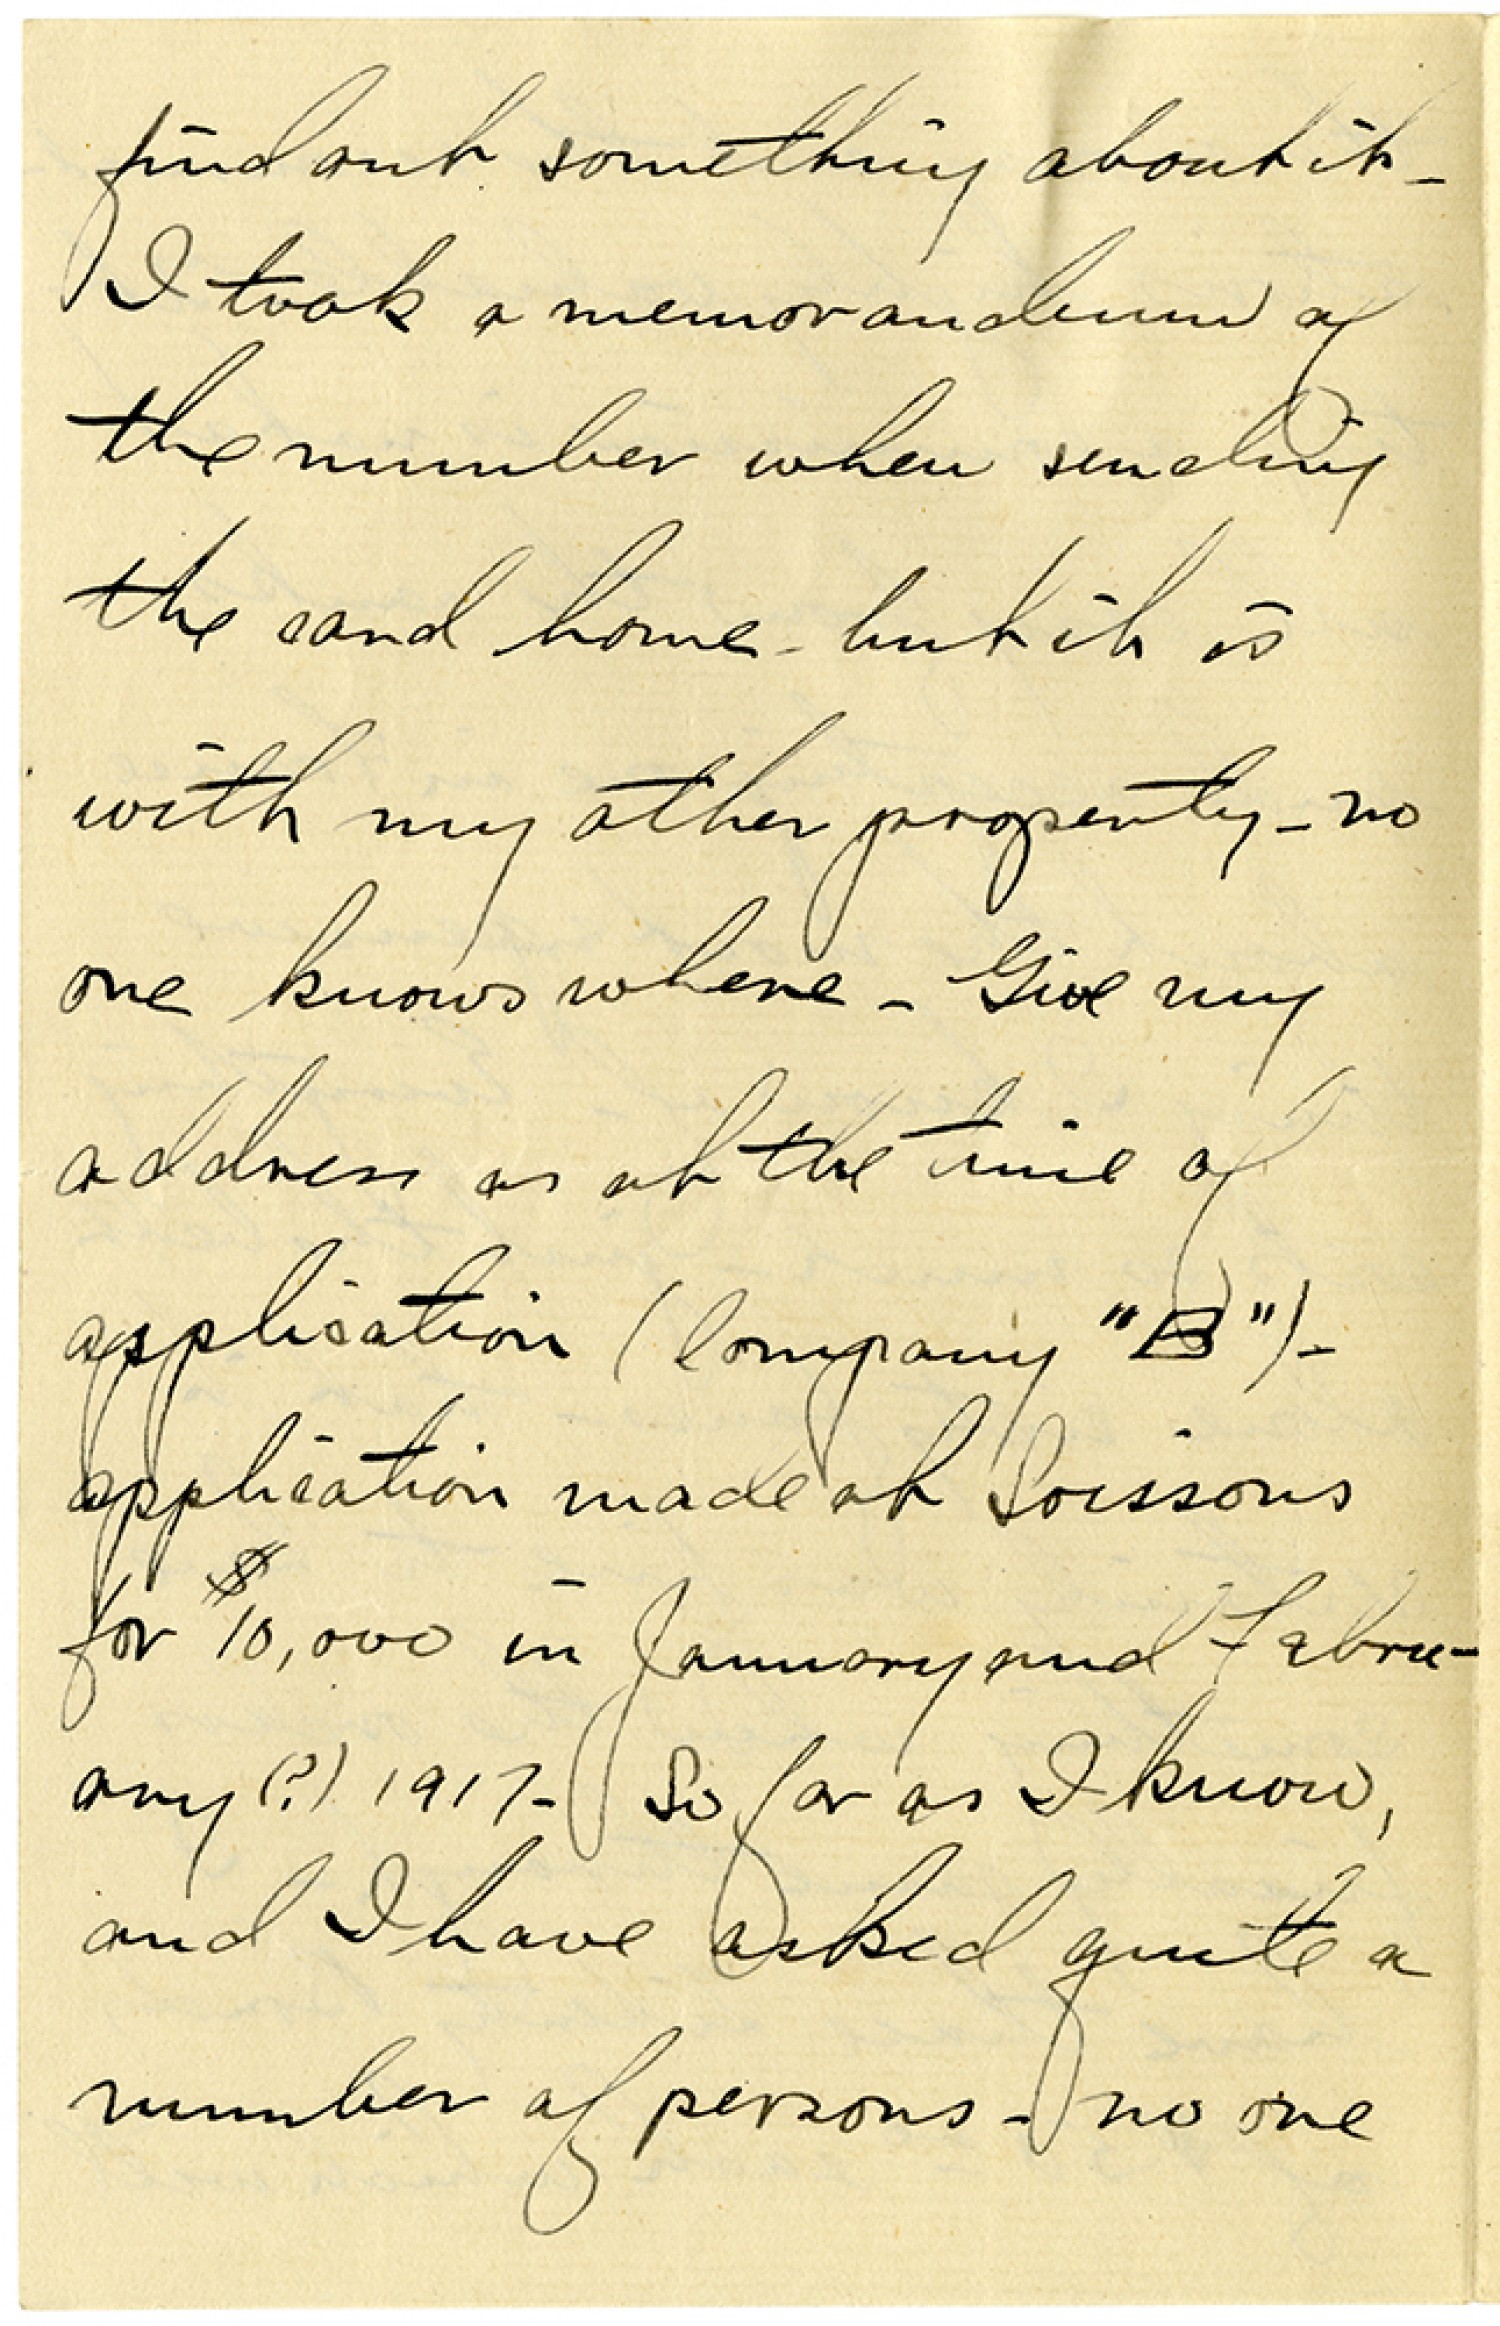 find out something about it -
I took a memorandum of
the number when sending
the card home - but it is
with my other property - no
one knows where - Give my
address as at the time of
application (Company "B") -
application made at Soissons
for $10,000 in January and Febru-
ary (?) 1917 - So far as I know,
and I have asked quite a
number of persons - no one